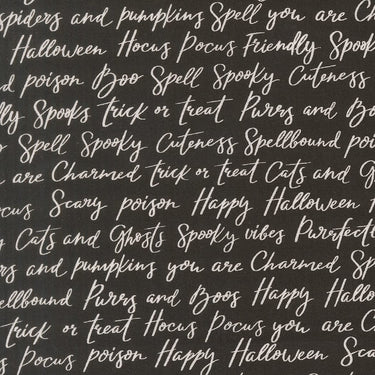 spiders and pumpkins Spell you are Charm
Halloween Hocus Pocus Friendly Spook
d poison Boo Spell Spooky Cuteness
lly Spooks trick or treat Purrs and Bo
y Spell Spooky Cuteness Spellbound poi
are Charmed trick or treat Cats and Gh
ocus Scary poison Happy Halloween H
y Cats and Ghosts Spooky vibes Purrfectl
rs and pumpkins you are Charmed Sp
pellbound Purrs and Boos Happy Hallo
trick or treat Hocus Pocus you are C
s Pocus poison Happy Halloween Scar